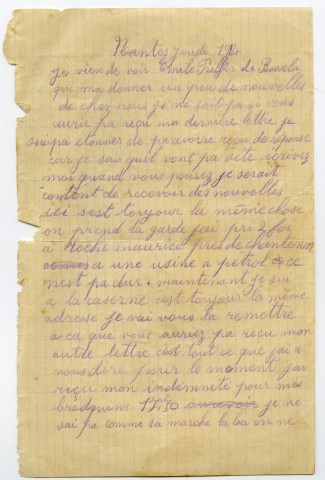 Nantes jeudi 1914
je vien de voir Emile de
qui ma donner un peu de nouvelles
de chez nous je ne sait pa si vous
aurie pa reçu ma dernière lettre je
suis pa etonner de pa avoire reçu de reponse
car je sai que vont pa vite ecrivez
moi quand vous pourez je serait
content de recevoir des nouvelles
ici sest toujour la même chose
on prend la garde jai pri 2 foi
a Roche maurice près de chantenai
a une usine a petrol ce
nest pa dur. maintenant je sui
a la caserne cest toujour la même
adresse je vai vous la remettre
a ca que vous auriez pa reçu mon
autre lettre cest tout ce que jai a
vous dire pour le moment jai
reçu mon indemnité pour mes
brodquens 17f50 aurevoir je ne
sai pa comme sa marche la ba on ne